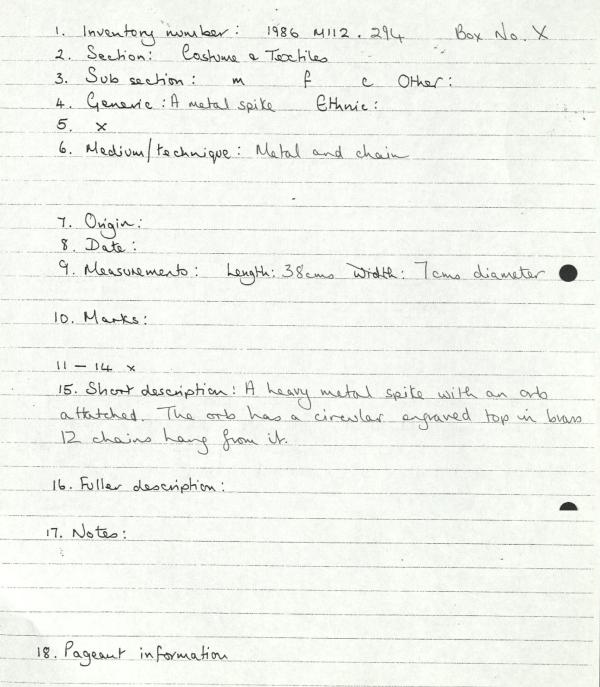 1. Inventory number: 1986 M112.294 Box No. X
2. Section: Costume & Textiles
3. Sub section: m f c Other:
4. Generic: A metal spike Ethnic:
5. x
6. Medium/technique: Metal and chain
7. Origin:
8. Date:
9. Measurements: Length: 38cms Width: 7cms diameter
10. Marks:
11 - 14 x
15. Short description: A heavy metal spike with an orb
attatched. The orb has a circular engraved top in brass
12 chains hang from it.
16. Fuller description:
17. Notes:
18. Pageant information